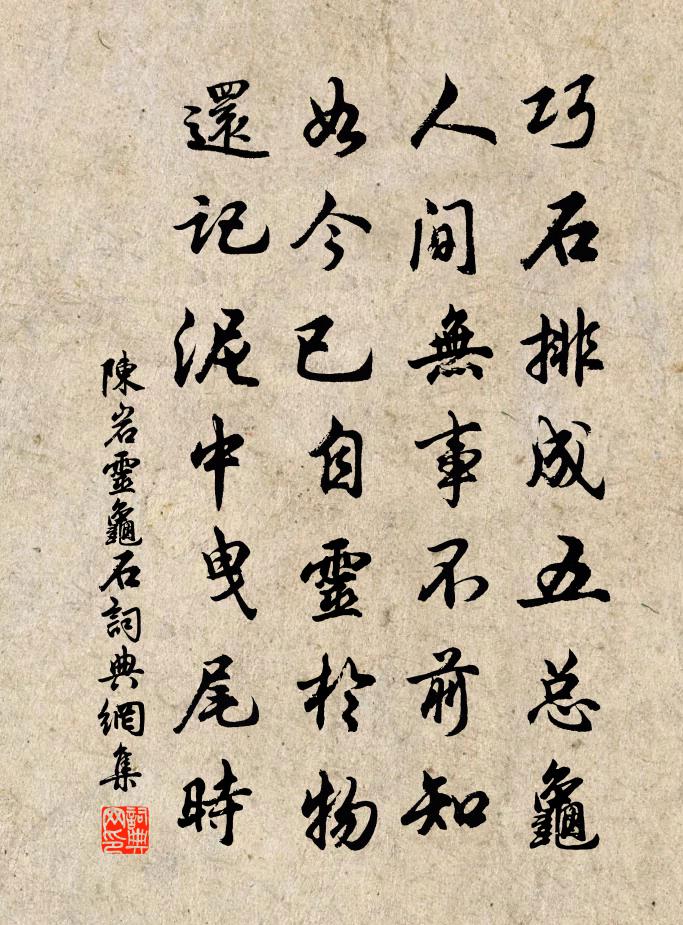 巧石排成五总龜
人間無事不前知
如今已自靈於物
還記泥中曳尾時
陳岩靈龜石詞典網集
詞典网印